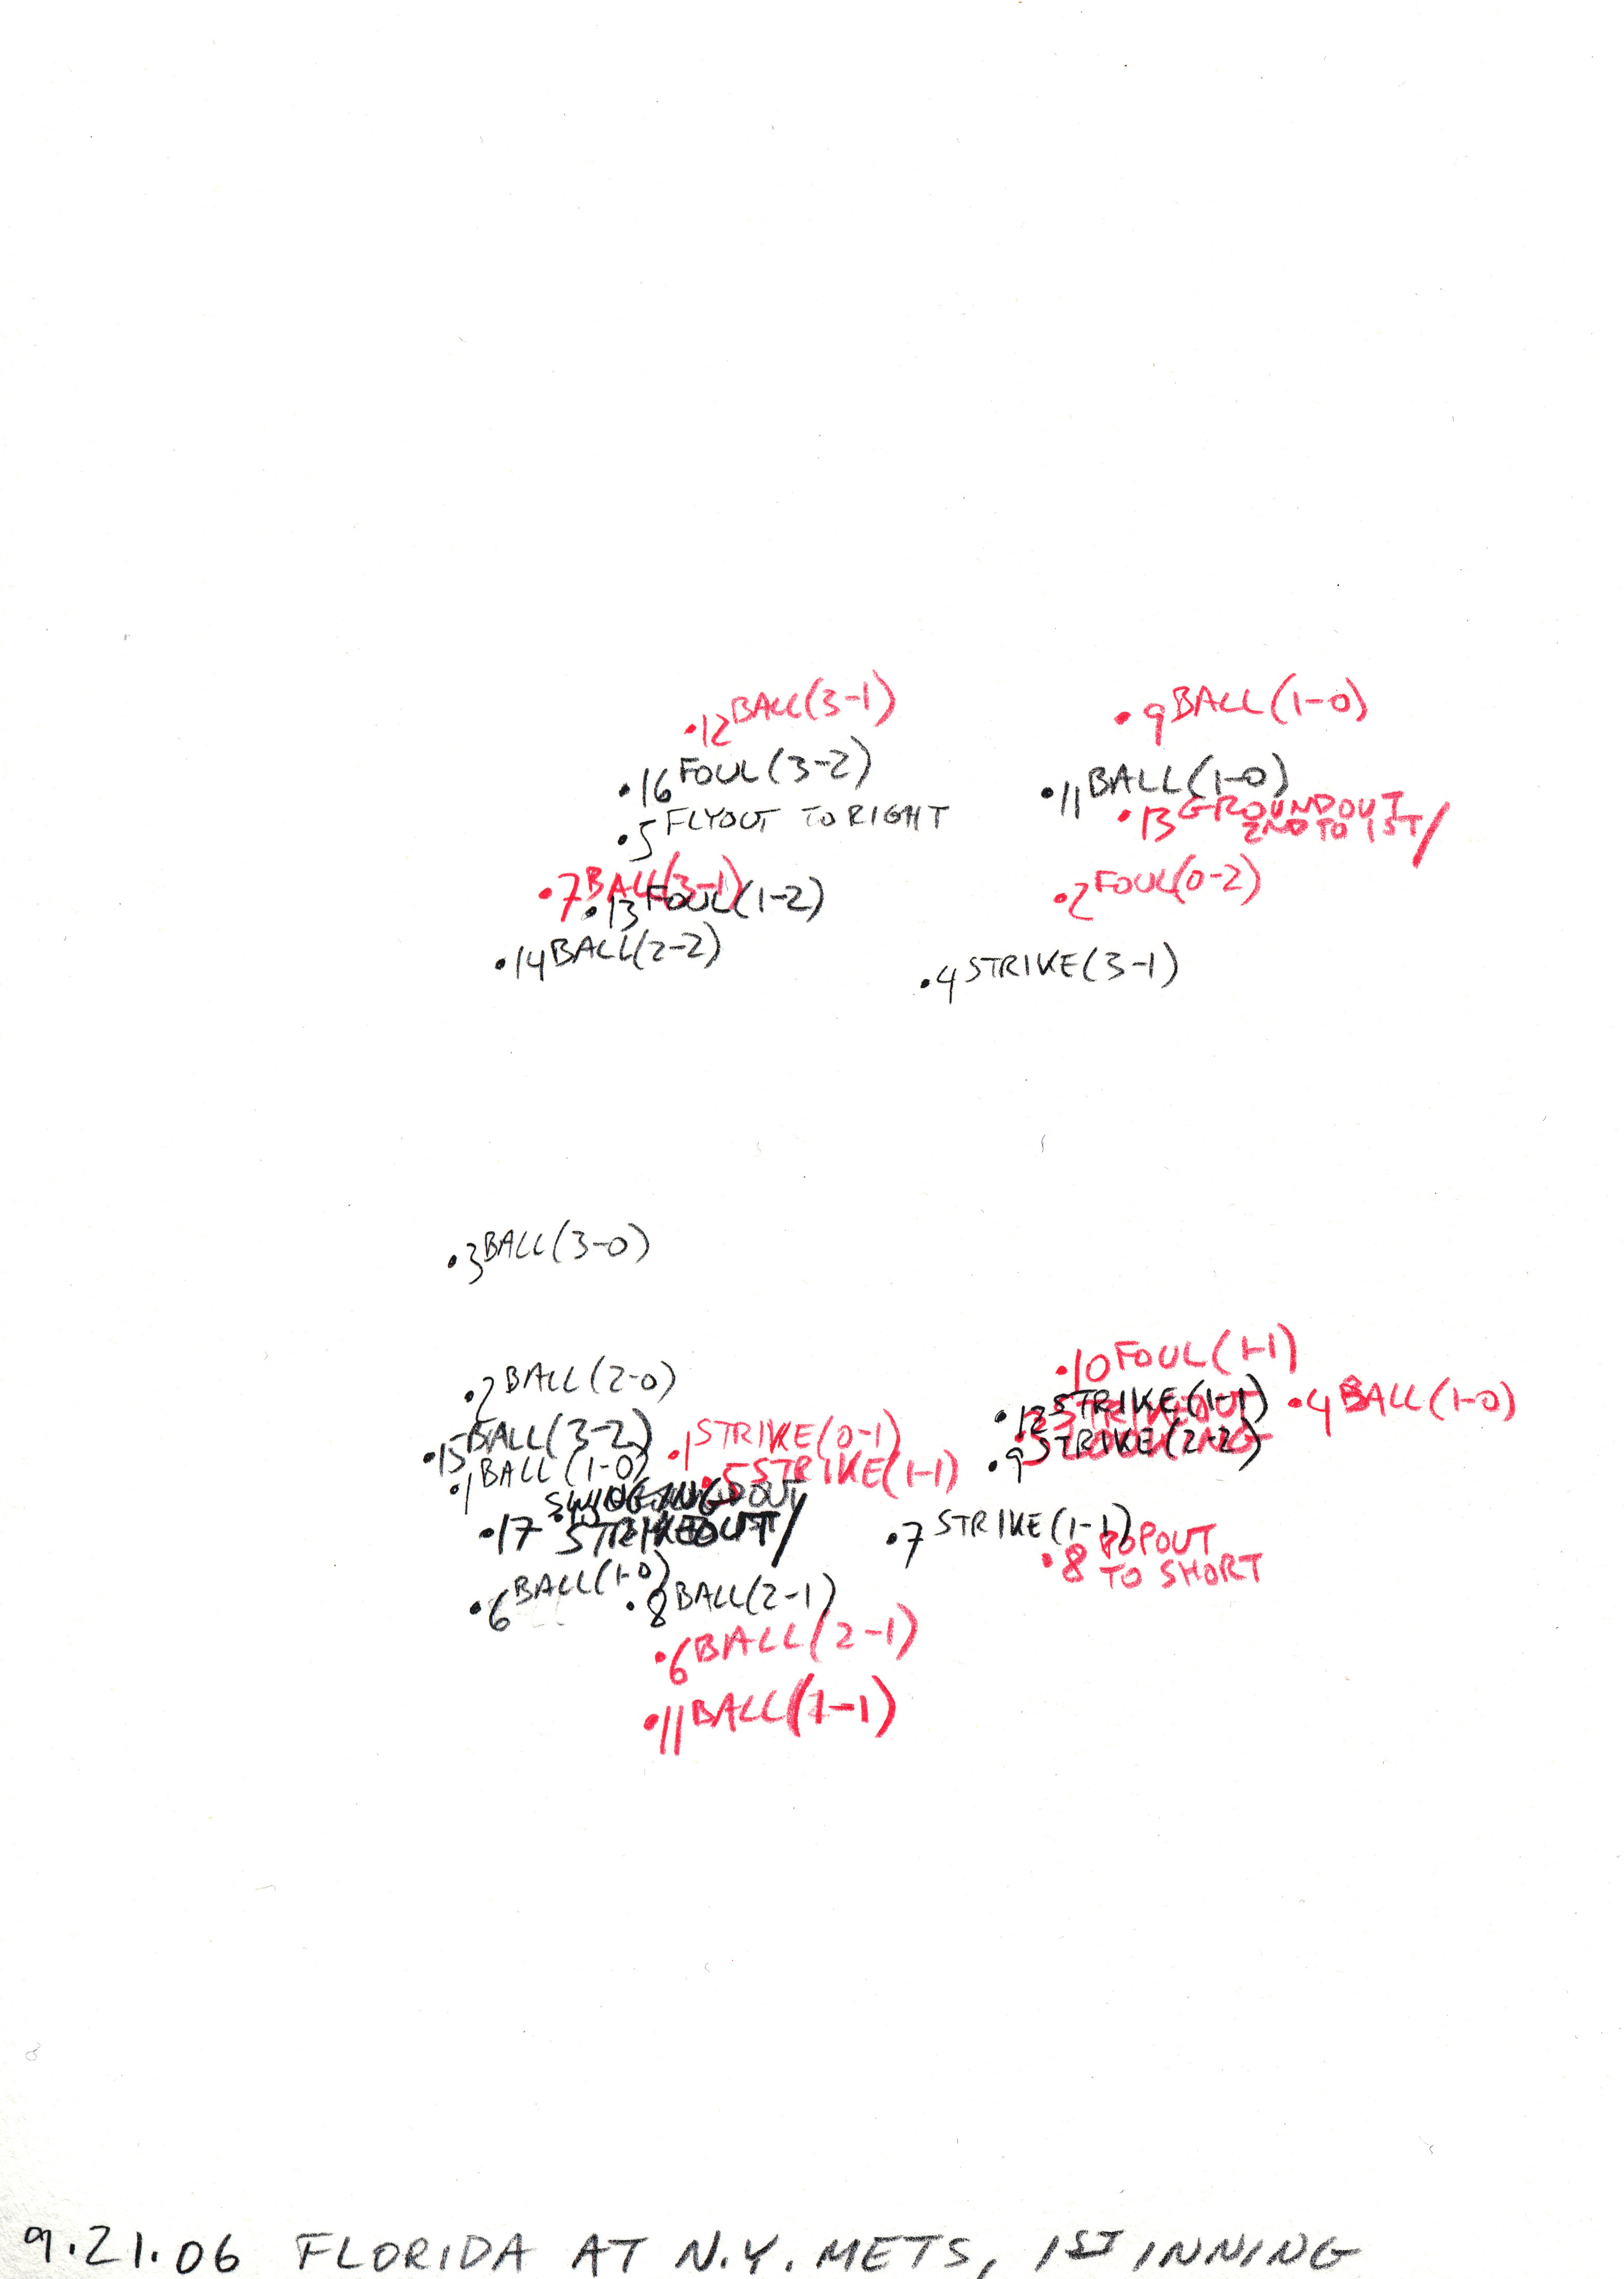 .12 BALL (3-1)
.9 BALL (1-0)
.16 FOUL (3-2)
.11 BALL (1-0)
.5 FLYOUT TO RIGHT
.13 GROUNDOUT
2ND TO 1ST/
.7 BALL (3-1)
.2 FOUL (0-2)
.13 FOUL (1-2)
.14 BALL (2-2)
.4 STRIKE (3-1)
.3 BALL (3-0)
.10 FOUL (1-1)
.2 BALL (2-0)
.12 STRIKE (1-1)
.4 BALL (1-0)
.3 STRIKEOUT
LOOKING
.15 BALL (3-2)
.1 STRIKE (0-1)
.9 STRIKE (2-2)
.1 BALL (1-0)
.5 STRIKE (1-1)
SWINGING
.17 STRIKEOUT/
.7 STRIKE (1-1)
.8 POPOUT
TO SHORT
.6 BALL (1-0)
.8 BALL (2-1)
.6 BALL (2-1)
.11 BALL (-1)
9.21.06 FLORIDA AT N.Y. METS, 1ST INNING